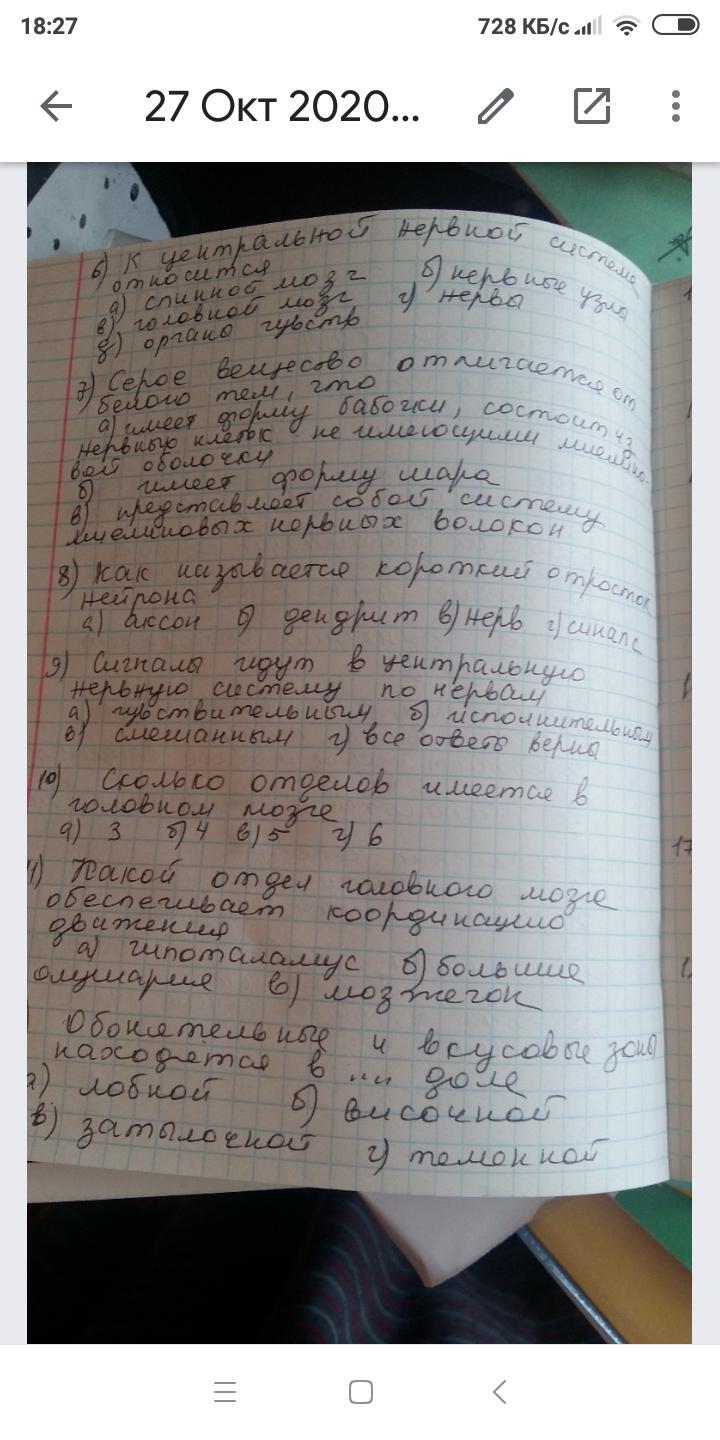 18:27
728 КБ/с
27 Окт 2020...
6) К центральной нервной системе
относится
а) спинной мозг б) нервные узлы
в) головной мозг г) нервы
д) органы чувств
7) Серое вещество отличается от
белого тем, что
а) имеет форму бабочки, состоит из
нервных клеток не имеющими миелино-
вой оболочки
б) имеет форму шара
в) представляет собой систему
миелиновых нервных волокон
8) Как называется короткий отросток
нейрона
а) аксон б) дендрит в) нерв г) синапс
9) Сигналы идут в центральную
нервную систему по нервам
а) чувствительным б) исполнительным
в) смешанным г) все ответы верны
10) Сколько отделов имеется в
головном мозге
а) 3 б) 4 в) 5 г) 6
11) Какой отдел головного мозга
обеспечивает координацию
движения
а) гипоталамус б) большие
олушария в) мозжечок
Обонятельные и вкусовые зоны
находятся в .... доле
а) лобной б) височной
в) затылочной г) теменной
17